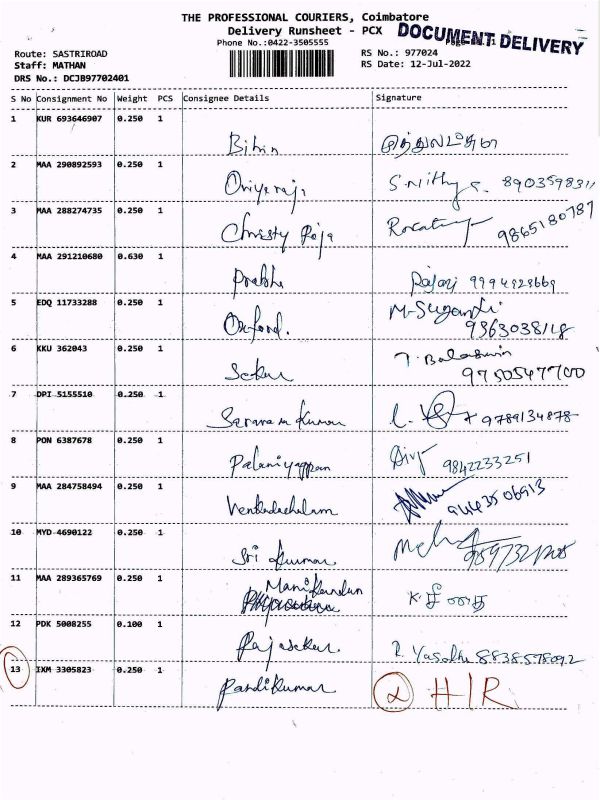 THE PROFESSIONAL COURIERS, Coimbatore
Delivery Runsheet - PCX
DOCUMENT DELIVERY
Phone No.:0422-3505555
Route: SASTRIROAD
Staff: MATHAN
DRS No.: DCJB97702401
RS No.: 977024
RS Date: 12-Jul-2022
S No Consignment No Weight PCS Consignee Details Signature
1 KUR 693646907 0.250 1
Bibin
2 MAA 290892593 0.250 1
8903598311
3 MAA 288274735 0.250 1
Christy Roja 9865180787
4 MAA 291210680 0.630 1
Prabhu Rajaraj 9994928669
5 EDQ 11733288 0.250 1
Oxford. M-Suganthi
9363038118
6 KKU 362043 0.250 1
Sekar T. Balaswin
9750547700
7 DPI 5155510 0.250 1
Saravana Kumar 9789134878
8 PON 6387678 0.250 1
Palaniyappan Divy 9842233251
9 MAA 284758494 0.250 1
Venkadachalam 9443506913
10 MYD 4690122 0.250 1
Sri Kumar
11 MAA 289365769 0.250 1
Manikandan
12 PDK 5008255 0.100 1
Rajasekar R. Yasodha 8838578092
13 IXM 3305823 0.250 1
Pandikumar 2 H/R